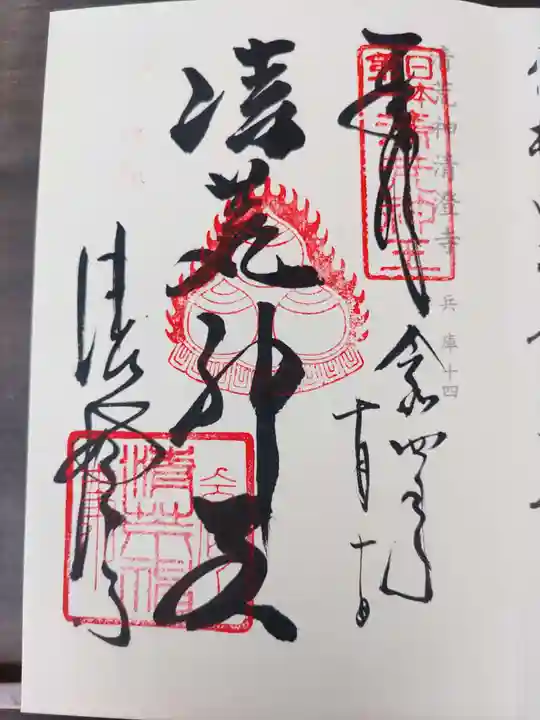 奉拝
清荒神清澄寺 兵庫十四
日本第一清荒神王
令和四年
十月十日
清荒神王
清澄寺
清荒神